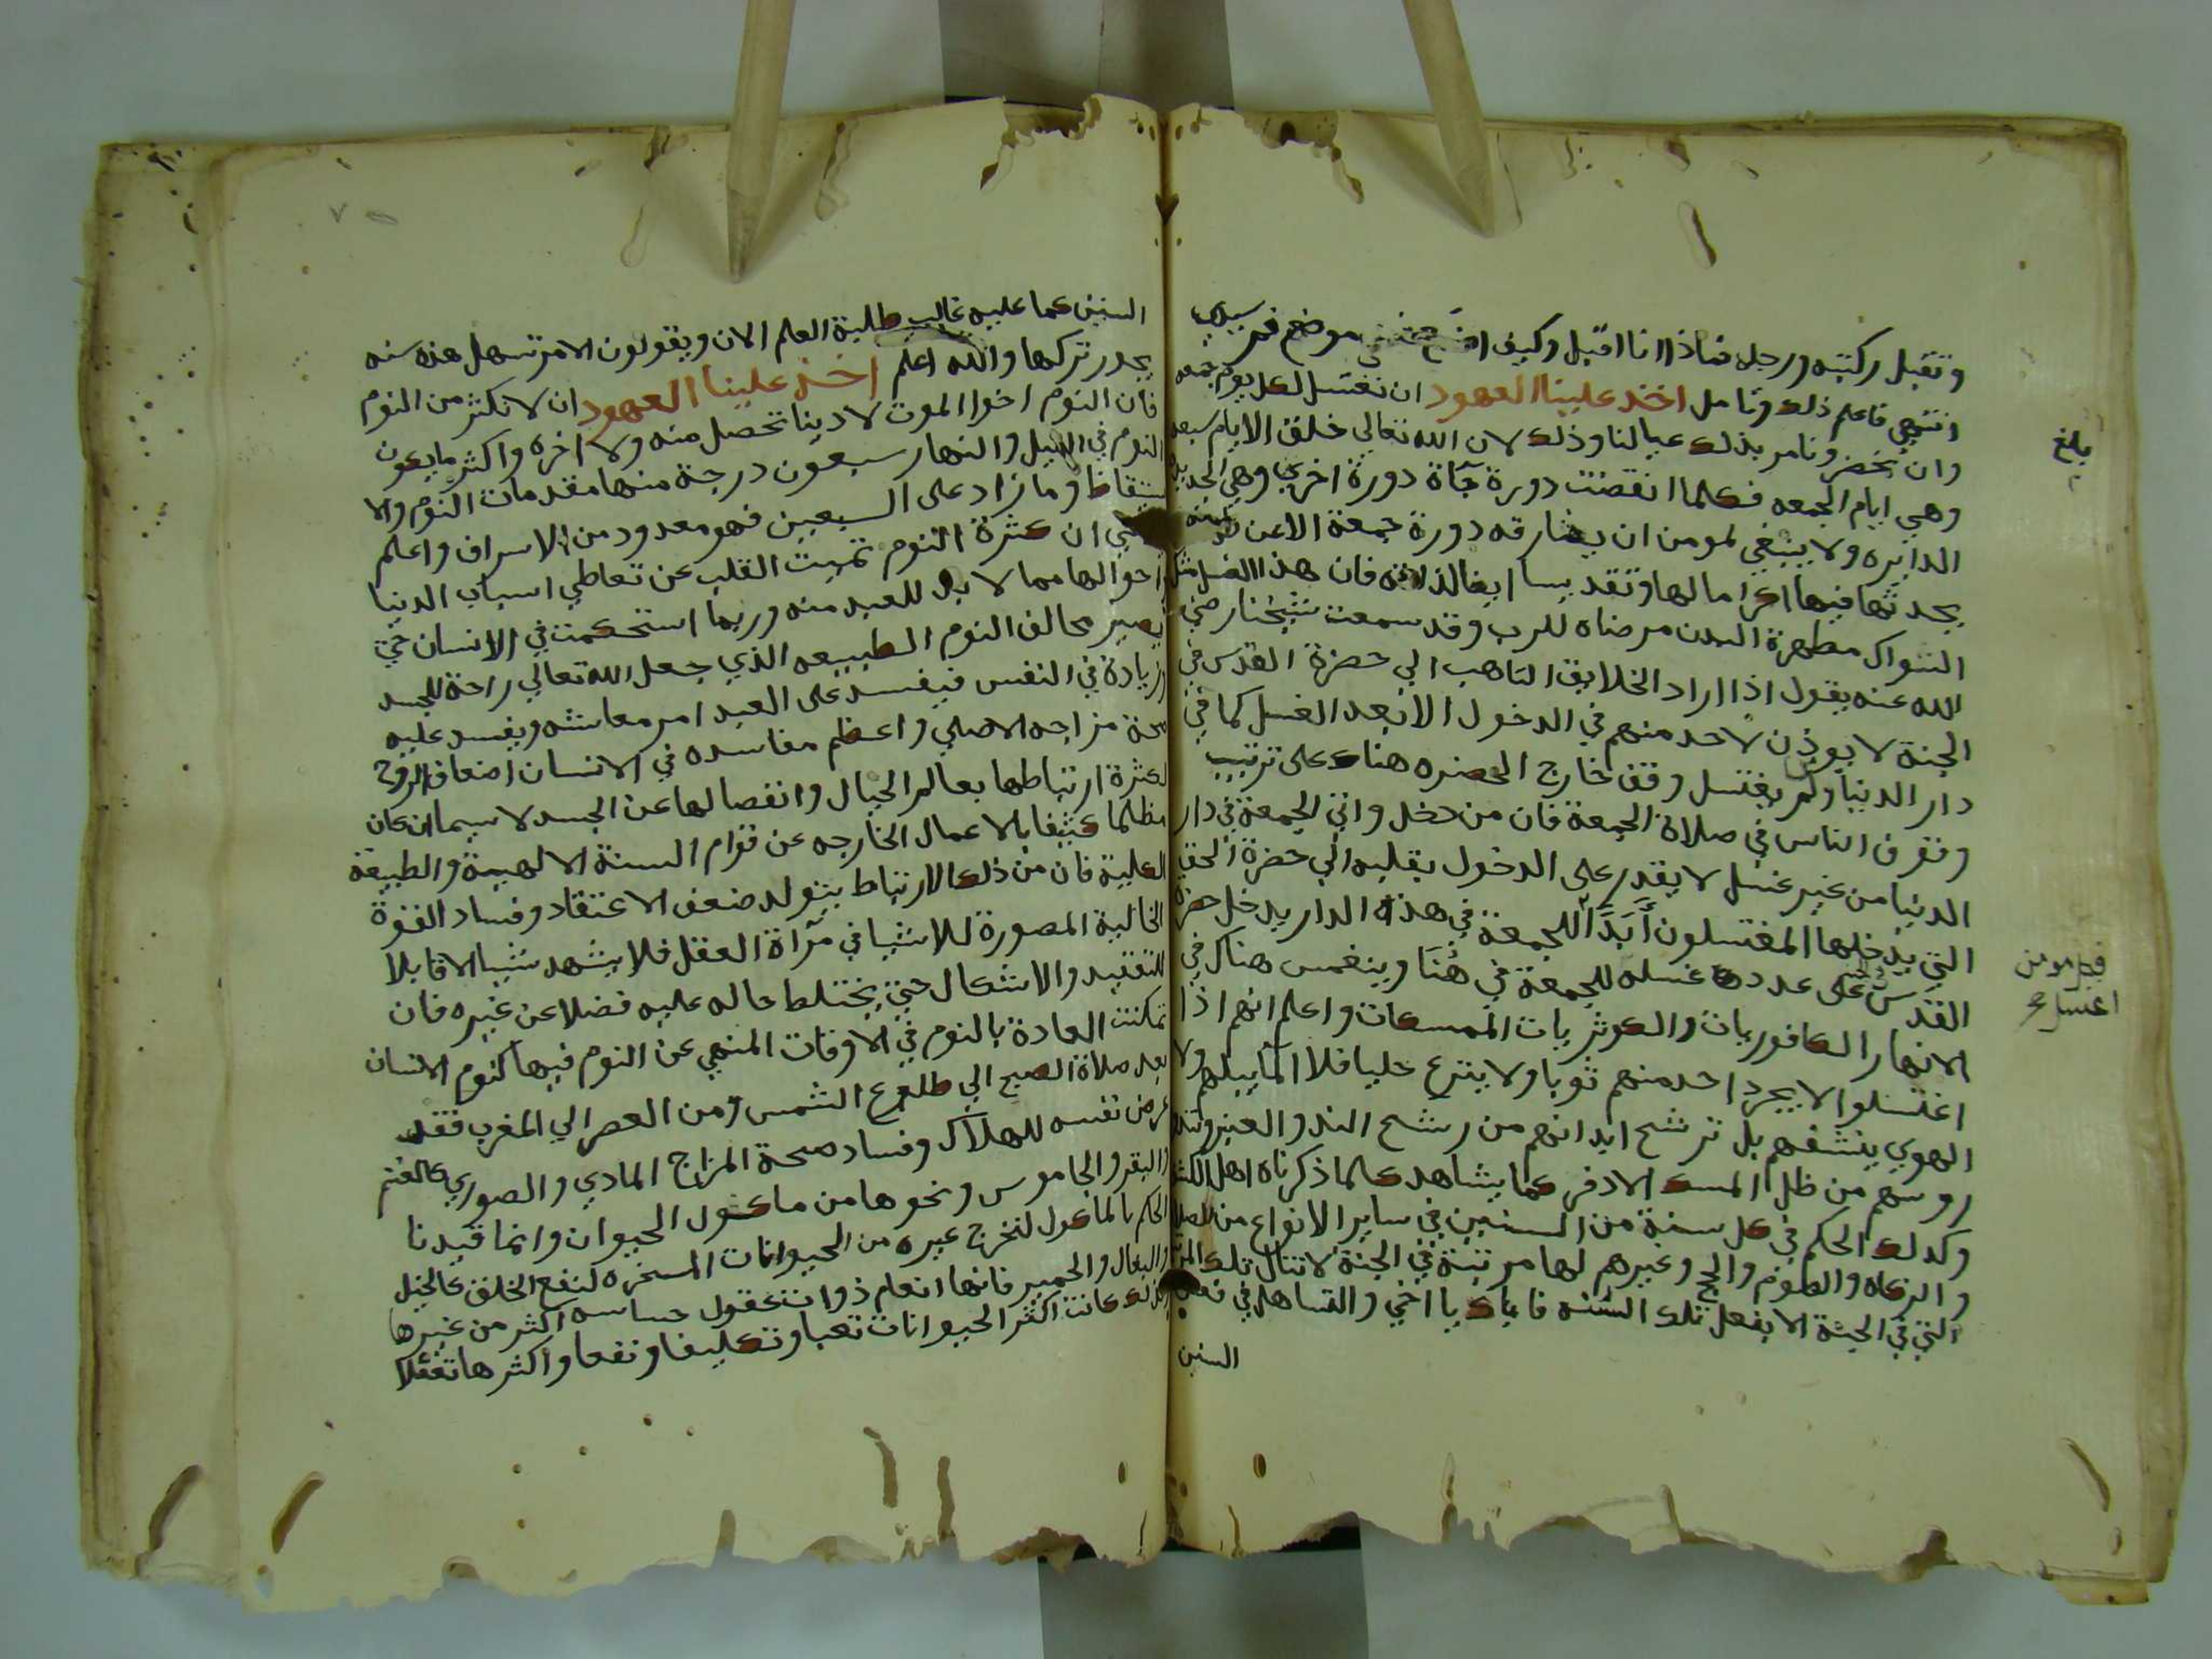 وتقبل ركبته ورجله فناذا انا اقبل وكيف موضع فم سيدي
انتهي فاعلم ذلك وتامل اخذ علينا العهود ان نغتسل لكل يوم جمعه
وان نحضر ونامر بذلك عيالنا وذلك لان الله تعالي خلق الايام سبعه
وهي ايام الجمعه فكلما انقضت دورة جآة دورة اخري وهي الجديده
الدايره ولا ينبغي لمومن ان يفارقه دورة جمعة الا عن طهارة
يحدثها فيها اكراما لها وتقديسا ايضا لذاته فان هذا الغسل مثل
السواك مطهرة البدن مرضاه للرب وقد سمعت شيخنا رضي
الله عنه يقول اذا اراد الخلايق التاهب الي حضرة القدس في
الجنة لا يوذن لاحد منهم في الدخول الا بعد الغسل كما في
دار الدنيا ومن لم يغتسل وقف خارج الحضره هناك على ترتيب
وتفرق الناس في صلاة الجمعة فان من دخل واتي الجمعة في دار
الدنيا من غير غسل لا يقدر على الدخول بقلبه الي حضرة الحق
التي يدخلها المغتسلون أبدا للجمعة في هذه الدار يدخل حضرة
القدس على عدد غسله للجمعة في هُنَا وينغمس هناك في
الانهار الكافوريات والكوثريات الممسكات واعلم انهم اذا
اغتسلوا لا يجرد احد منهم ثوبا ولا ينزع حليا فلا الما يبلهم ولا
الهوي ينشفهم بل ترشح ابدانهم من رشح الند والعنبر وتندا
روسهم من ظل المسك الاذفر كما يشاهد كلما ذكرناه اهل الكشف
وكذلك الحكم في كل سنة من السنين في ساير الانواع من الصلاة
والزكاه والصوم والحج وغيرهم لها مرتبة في الجنة لا تنال تلك المرتبة
التي في الجنة الا بفعل تلك السنه فاياك يا اخي والتساهل في فعل
السنين
بلغ
السنين كما عليه غالب طلبة العلم الان ويقولون الامر تسهل هذه سنه
يجوز تركها والله اعلم اخذ علينا العهود ان لا نكثر من النوم
فان النوم اخوا الموت لا دينا تحصل منه ولا اخره واكثر ما يكون
النوم في الليل والنهار سبعون درجة منها مقدمات النوم والا
ستقاظ وما زاد على السبعين فهو معدود من الاسراف واعلم
ان كثرة النوم تميت القلب عن تعاطي اسباب الدنيا
واحوالها مما لا بد للعبد منه وربما استحكمت في الانسان حتي
يصير مخالف النوم الطبيعه الذي جعل الله تعالي راحة للجسد
وزيادة في النفس فيفسد على العبد امر معاشه ويفسد عليه
صحة مزاجه الاصلي واعظم مفاسده في الانسان اضعاف الروح
لكثرة ارتباطها بعالم الخيال وانفصالها عن الجسد لا سيما ان كان
مظلما كثيفا بالاعمال الخارجه عن قوام السنة الالهية والطبيعة
العلية فان من ذلك الارتباط يتولد ضعف الاعتقاد وفساد القوة
الخالية المصورة للاشيا في مرآة العقل فلا يشهد شيا الا قابلا
للتقييد والاشكال حتي يختلط حاله عليه فضلا عن غيره فان
تمكنت العادة بالنوم في الاوقات المنهي عن النوم فيها كنوم الانسان
بعد صلاة الصبح الي طلوع الشمس ومن العصر الي المغرب فقد
عرض نفسه للهلاك وفساد صحة المزاج المادي والصوري كالغنم
والبقر والجاموس ونحوها من ماكول الحيوان وانما قيدنا
الحكم بالماكول لنخرج غيره من الحيوانات المسخره لنفع الخلق كالخيل
والبغال والحمير فانها انعام ذوات عقول حساسه اكثر من غيرها
وكذلك كانت اكثر الحيوانات تعبا وتكليفا ونفعا واكثرها تعقلا